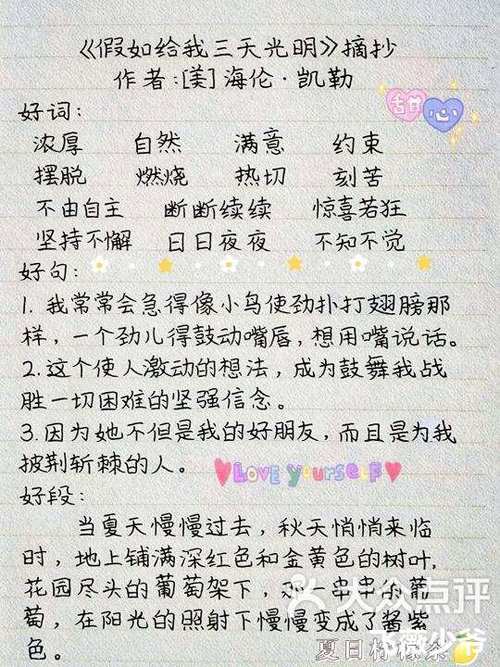 《假如给我三天光明》摘抄
作者:[美]海伦·凯勒
甜心
好词:
浓厚 自然 满意 约束
摆脱 燃烧 热切 刻苦
不由自主 断断续续 惊喜若狂
坚持不懈 日日夜夜 不知不觉
好句:
1. 我常常会急得像小鸟使劲扑打翅膀那
样,一个劲儿得鼓动嘴唇,想用嘴说话。
2.这个使人激动的想法,成为鼓舞我战
胜一切困难的坚强信念。
3.因为她不但是我的好朋友,而且是为我
披荆斩棘的人。
LOVE YourSELF
好段:
当夏天慢慢过去,秋天悄悄来临
时,地上铺满深红色和金黄色的树叶,
花园尽头的葡萄架下,那一串串的葡
萄,在阳光的照射下慢慢变成了酱紫
色。
大众点评
夏日柠檬茶